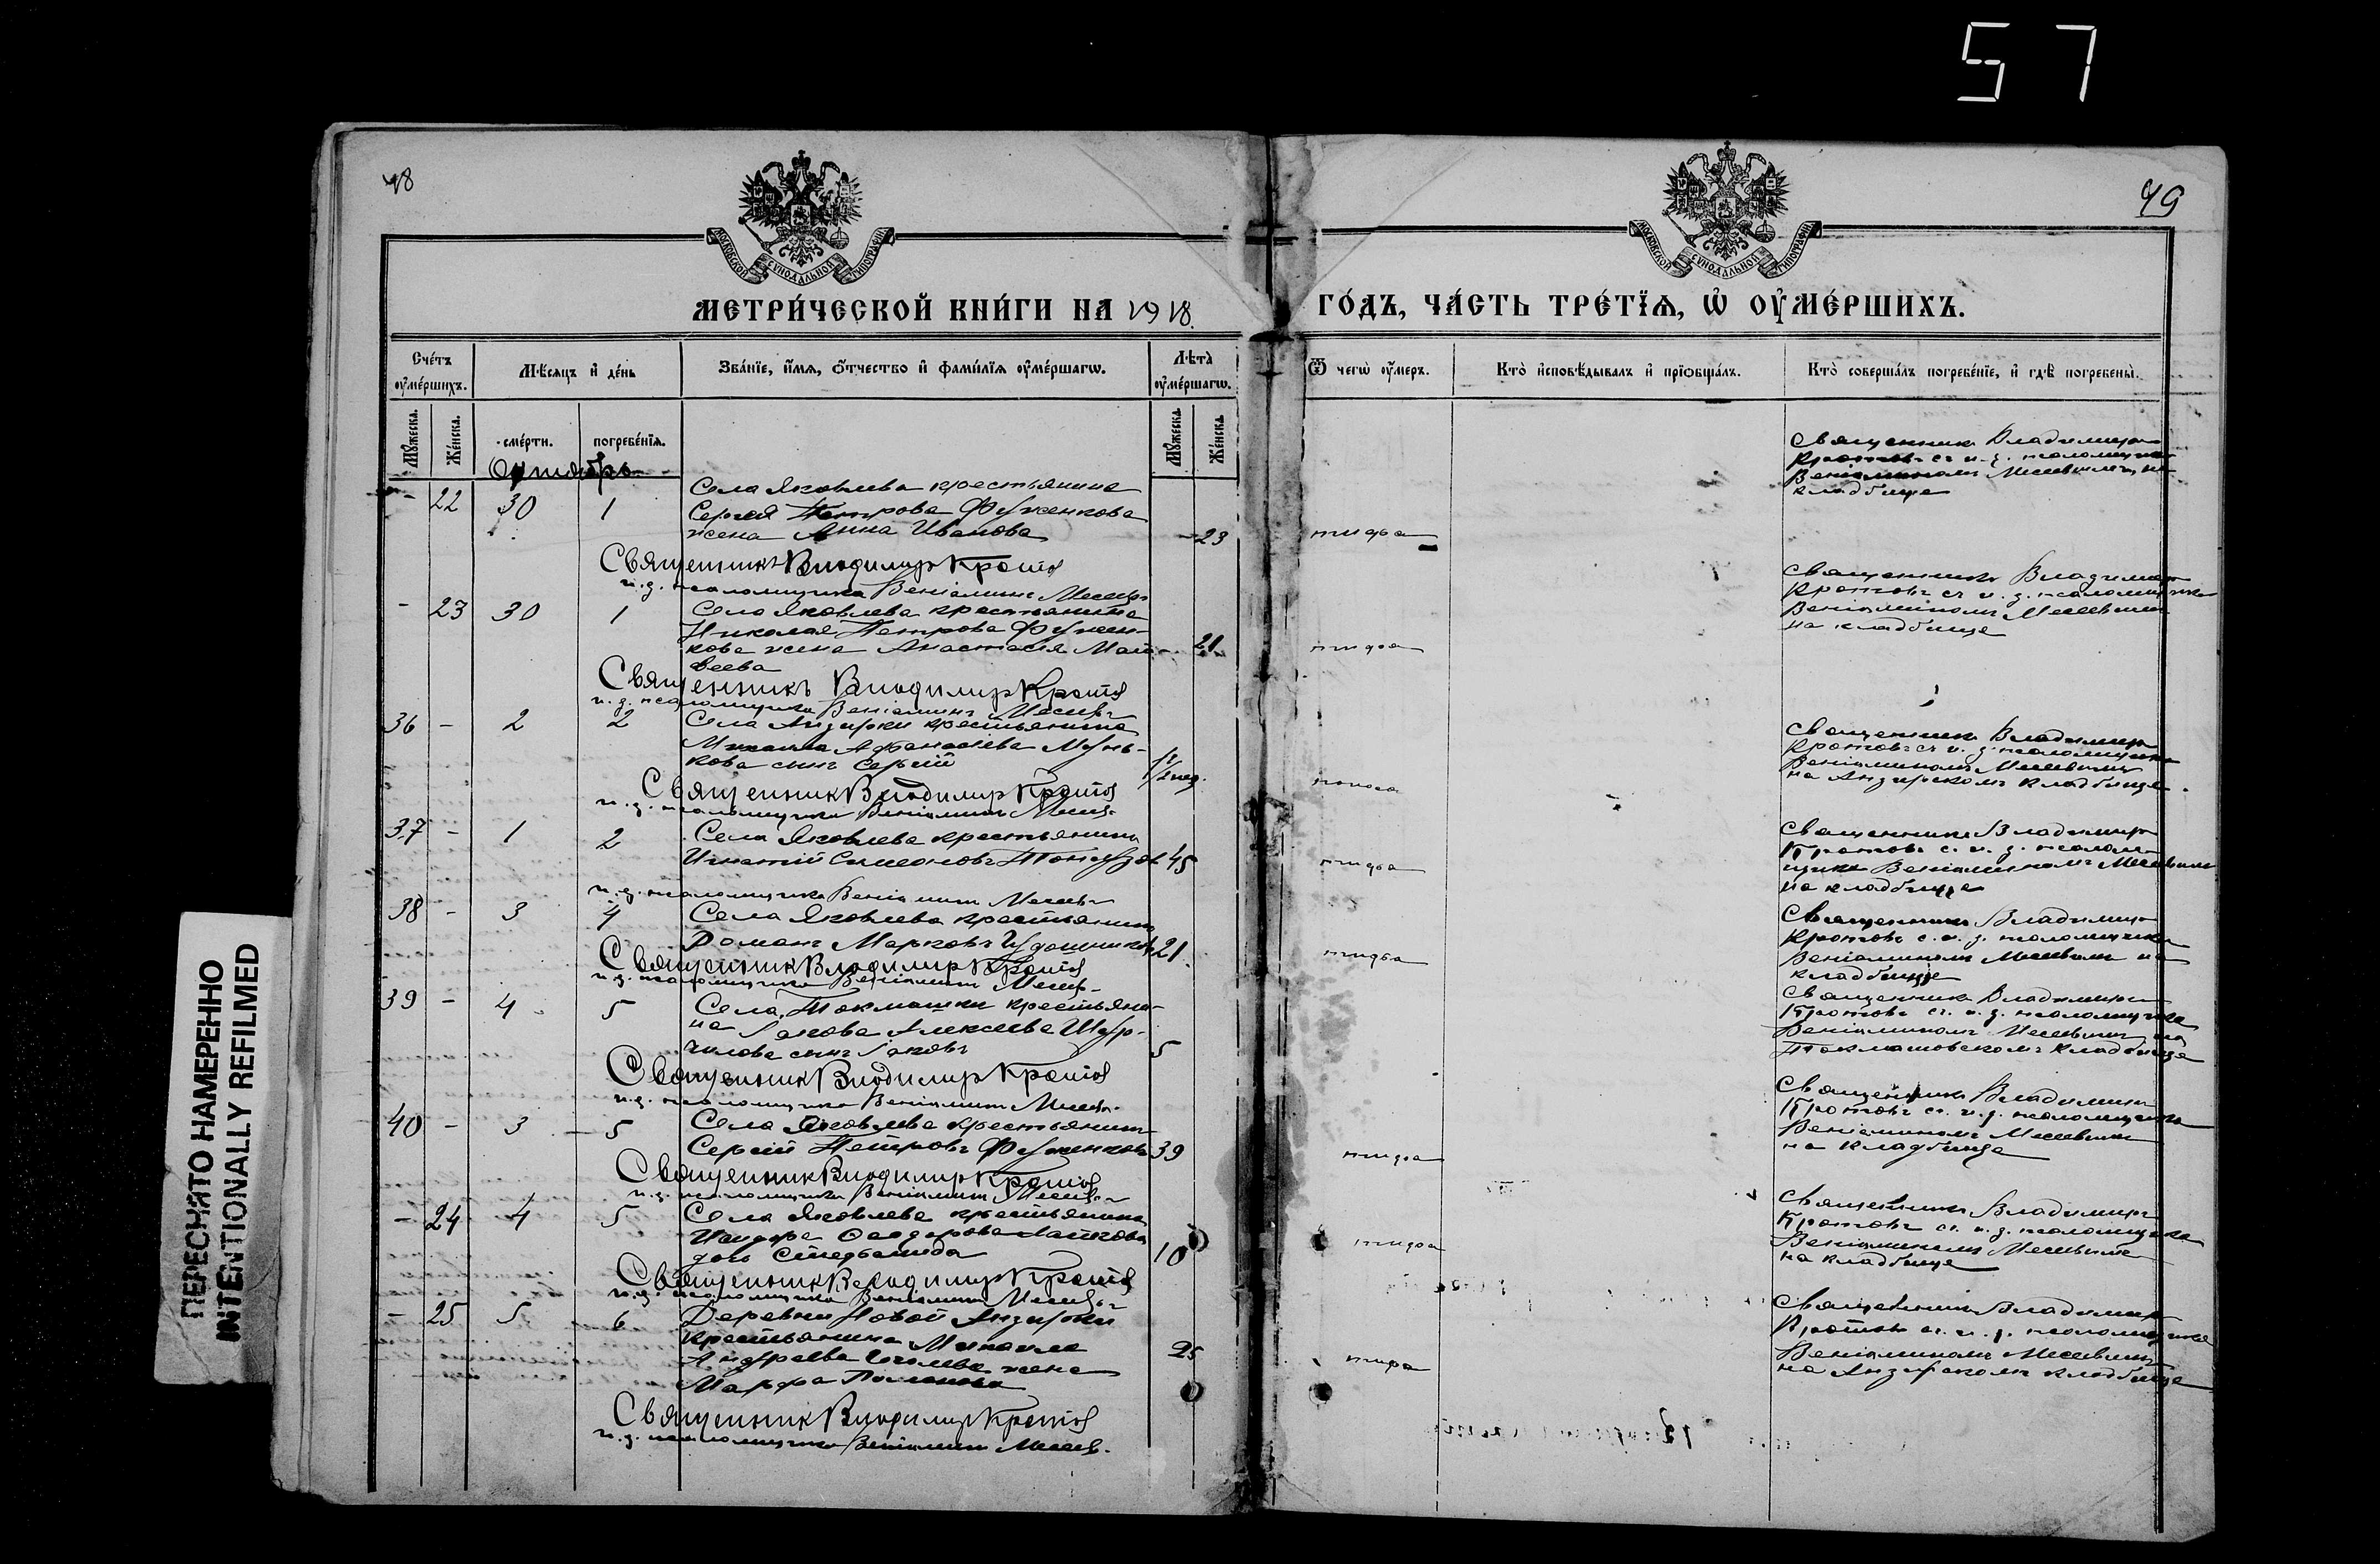 57
48
49
МОСКОВСКОЙ СѴНОДАЛЬНОЙ ТИПОГРАФІИ
МОСКОВСКОЙ СѴНОДАЛЬНОЙ ТИПОГРАФІИ
МЕТРИ́ЧЕСКОЙ КНИ́ГИ НА 1918
ГО́ДЪ, ЧА́СТЬ ТРЕ́ТЇѦ, Ѡ҆ ОУ҆МЕ́РШИХЪ.
Сче́тъ оу҆ме́ршихъ.
Мѣсяцъ и҆ де́нь
Зва́нїе, и҆́мѧ, ѻ҆́тчество и҆ фами́лїѧ оу҆ме́ршагѡ.
Лѣта̀ оу҆ме́ршагѡ.
Ѿ чегѡ̀ оу҆́меръ.
Кто̀ и҆сповѣ́дывалъ и҆ прїѡбща́лъ.
Кто̀ соверша́лъ погребе́нїе, и҆ гдѣ̀ погребены̀.
Мꙋ́жеска.
Же́нска.
сме́рти.
погребе́нїѧ.
Мꙋ́жеска.
Же́нска.
Октябрь
- 22 30 1
Села Яковлева крестьянина
Сергея Петрова Фуженкова
жена Анна Иванова
- 23
тифа
Священник Владимир
Кротовъ съ и. д. псаломщика
Веніамином на
кладбище
Священникъ Владимир Кротов
и. д. псаломщика Веніаминъ
- 23 30 1
Села Яковлева крестьянина
Николая Петрова Фужен-
кова жена Анастасія Мат-
веева
- 21
тифа
Священник Владимир
Кротовъ съ и. д. псаломщика
Веніамином
на кладбище
Священникъ Владимир Кротов
и. д. псаломщика Веніаминъ
36 - 2 2
Села Анзирки крестьянина
Михаила Афанасіева
кова сынъ Сергій
1/2 нед.
поноса
Священник Владимир
Кротовъ съ и. д. псаломщика
Веніамином
на Анзирскомъ кладбище.
Священник Владимир Кротов
и. д. псаломщика Веніамин
37 - 1 2
Села Яковлева крестьянин
Игнатій Симеоновъ
45
тифа
Священник Владимир
Кротовъ с. и. д. псалом-
щика Веніамином
на кладбище
и. д. псаломщика Веніамин
38 - 3 4
Села Яковлева крестьянин
Романъ Марковъ
21
тифа
Священник Владимир
Кротовъ с. и. д. псаломщика
Веніамином на
кладбище
Священник Владимир Кротов
и. д. псаломщика Веніамин
39 - 4 5
Села Токмашки крестьяни-
на Іакова Алексеева
чилова сынъ Іаковъ
5
Священник Владимир
Кротовъ съ. и. д. псаломщика
Веніаминомъ на
Токмашовскомъ кладбище
Священник Владимир Кротов
и. д. псаломщика Веніамин
40 - 3 - 5
Села Яковлева крестьянин
Сергій Петровъ Фуженковъ
39
тифа
Священник Владимир
Кротовъ съ. и. д. псаломщика
Веніаминомъ
на кладбище
Священник Владимир Кротов
и. д. псаломщика Веніамин
- 24 4 5
Села Яковлева крестьянина
Исидора Феодорова
дочь Степанида
10
тифа
Священник Владимир
Кротовъ съ. и. д. псаломщика
Веніамином
на кладбище
Священник Владимир Кротов
и. д. псаломщика Веніамин
- 25 5 6
Деревни Новой Анзирки
крестьянина Михаила
Андреева жена
Марфа
25
тифа
Священник Владимир
Кротовъ съ. и. д. псаломщика
Веніаминомъ
на Анзирскомъ кладбище
Священник Владимир Кротов
и. д. псаломщика Веніамин
ПЕРЕСНЯТО НАМЕРЕННО
INTENTIONALLY REFILMED